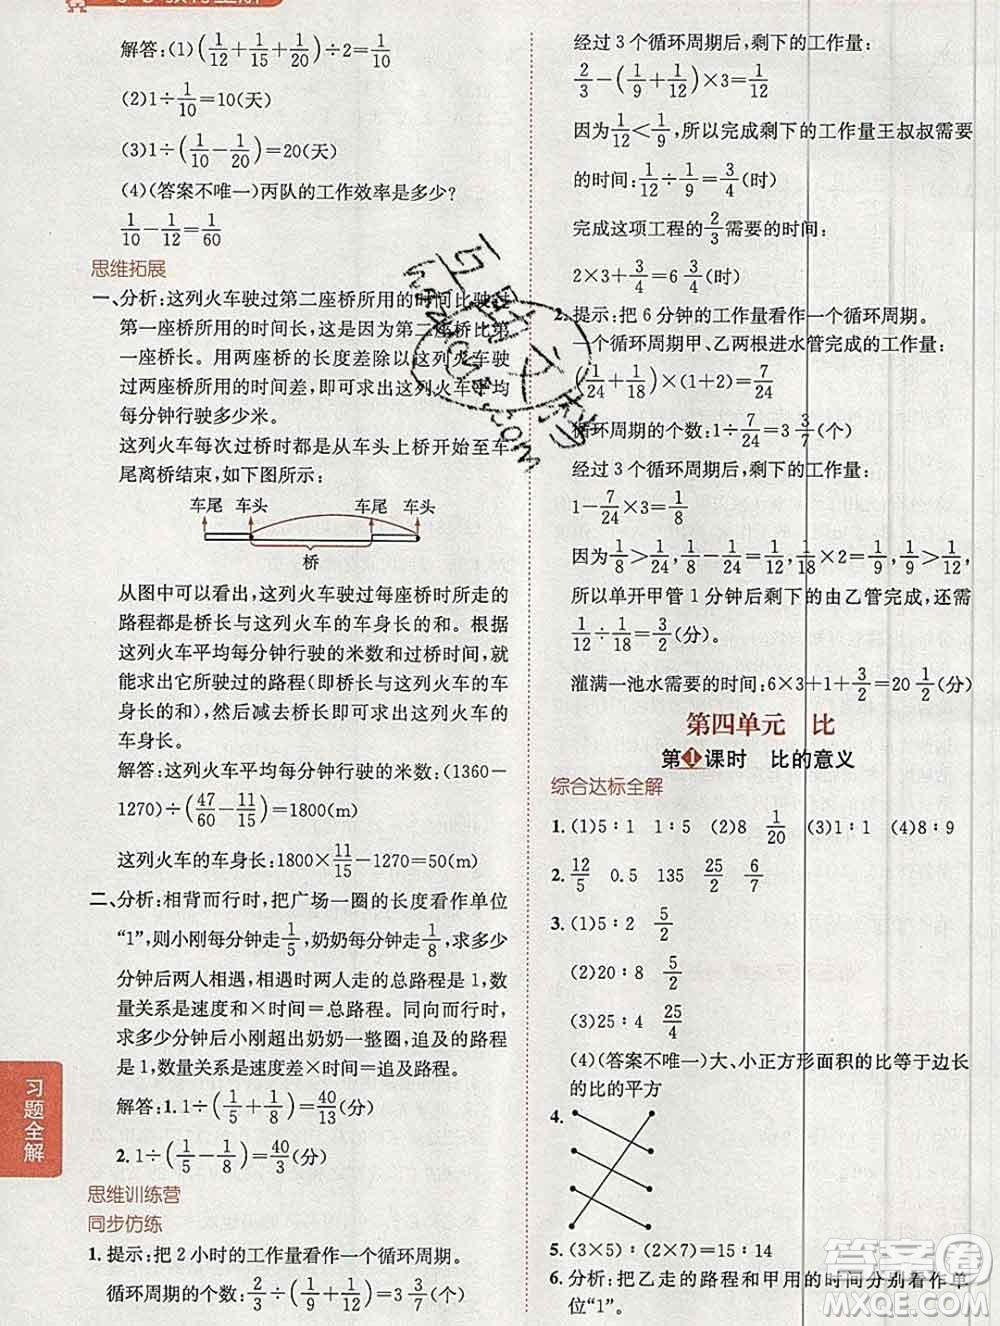 解答:(1)(1/12+1/15+1/20)÷2=1/10
(2)1÷1/10=10(天)
(3)1÷(1/10-1/20)=20(天)
(4)(答案不唯一)丙队的工作效率是多少?
1/10-1/12=1/60
思维拓展
一、分析:这列火车驶过第二座桥所用的时间比驶过
第一座桥所用的时间长,这是因为第二座桥比第
一座桥长。用两座桥的长度差除以这列火车驶
过两座桥所用的时间差,即可求出这列火车平均
每分钟行驶多少米。
这列火车每次过桥时都是从车头上桥开始至车
尾离桥结束,如下图所示:
车尾 车头 车尾 车头
桥
从图中可以看出,这列火车驶过每座桥时所走的
路程都是桥长与这列火车的车身长的和。根据
这列火车平均每分钟行驶的米数和过桥时间,就
能求出它所驶过的路程(即桥长与这列火车车身
长的和),然后减去桥长,即可求出这列火车的
车身长。
解答:这列火车平均每分钟行驶的米数:(1360-
1270)÷(47/60-11/15)=1800(m)
这列火车的车身长:1800×11/15-1270=50(m)
二、分析:相背而行时,把广场一圈的长度看作单位
“1”,则小刚每分钟走1/5,奶奶每分钟走1/8,求多少
分钟后两人相遇,相遇时两人走的总路程是1,数
量关系是速度和×时间=总路程。同向而行时,
求多少分钟后小刚超出奶奶一整圈,追及的路程
是1,数量关系是速度差×时间=追及路程。
解答:1.1÷(1/5+1/8)=40/13(分)
2.1÷(1/5-1/8)=40/3(分)
思维训练营
同步仿练
1.提示:把2小时的工作量看作一个循环周期。
循环周期的个数:2/3÷(1/9+1/12)=3 3/7(个)
习题全解
经过3个循环周期后,剩下的工作量:
2/3-(1/9+1/12)×3=1/12
因为1/12<1/9,所以完成剩下的工作量王叔叔需要
的时间:1/12÷1/9=3/4(时)
完成这项工程的2/3需要的时间:
2×3+3/4=6 3/4(时)
2.提示:把6分钟的工作量看作一个循环周期。
一个循环周期甲、乙两根进水管完成的工作量:
(1/24+1/18)×(1+2)=7/24
循环周期的个数:1÷7/24=3 3/7(个)
经过3个循环周期后,剩下的工作量:
1-7/24×3=1/8
因为1/8>1/24,1/8>1/18,1/18×2=1/9,1/8>1/9>1/18,
所以单开甲管1分钟后剩下的由乙管完成,还需
1/12÷1/18=3/2(分)。
灌满一池水需要的时间:6×3+1+3/2=20 1/2(分)
第四单元 比
第1课时 比的意义
综合达标全解
1.(1)5∶1 1∶5 (2)8 1/20 (3)1∶1 (4)8∶9
2.12/5 0.5 135 25/2 6/7
3.(1)5∶2 5/2
(2)20∶8 5/2
(3)25∶4 25/4
(4)(答案不唯一)大、小正方形面积的比等于边长
的比的平方
4.
5.(3×5)∶(2×7)=15∶14
6.分析:把乙走的路程和甲用的时间分别看作单
位“1”。
答案圈
MXQE.COM